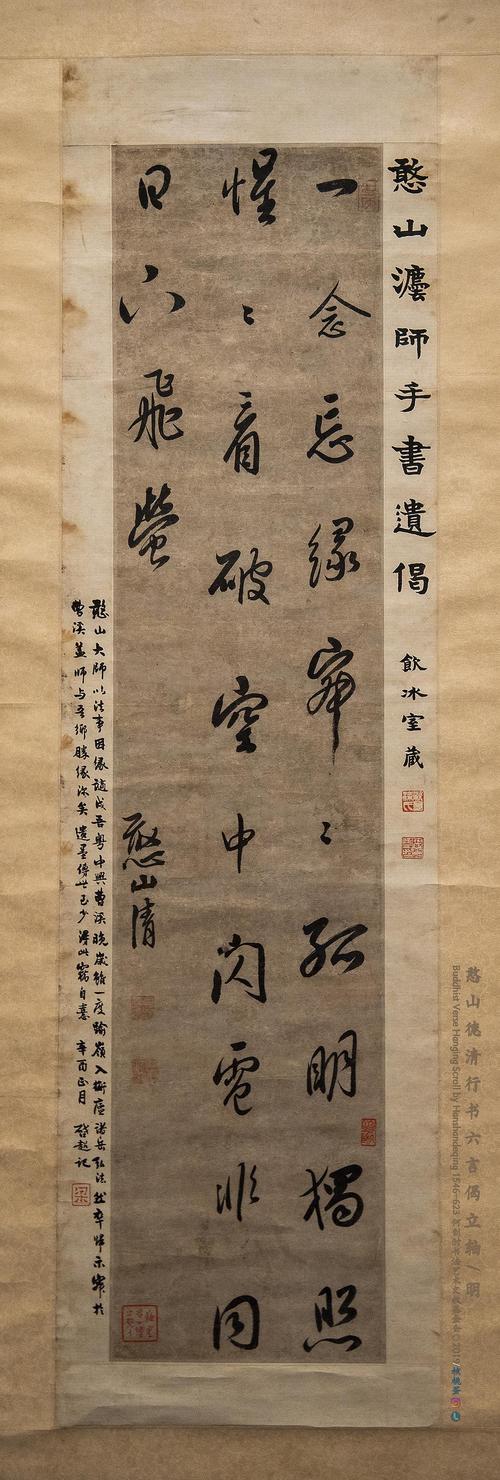 憨山灋師手書遺偈
飲冰室藏
一念忘緣寂〻孤明獨照
惺〻看破空中閃電非同
日下飛螢
憨山清
憨山大師以法事因緣謫戍吾粵中興曹溪晚歲雖一度踰嶺入衡廬諸岳弘法然卒歸示寂於
曹溪蓋師与吾鄉勝緣深矣遺墨傳世已少得此竊自憙 辛酉正月 啓超記
憨山德清行书六言偈立轴/明
Buddhist Verse Hanging Scroll by Hanshandeqing 1546-1623
核桃蛋